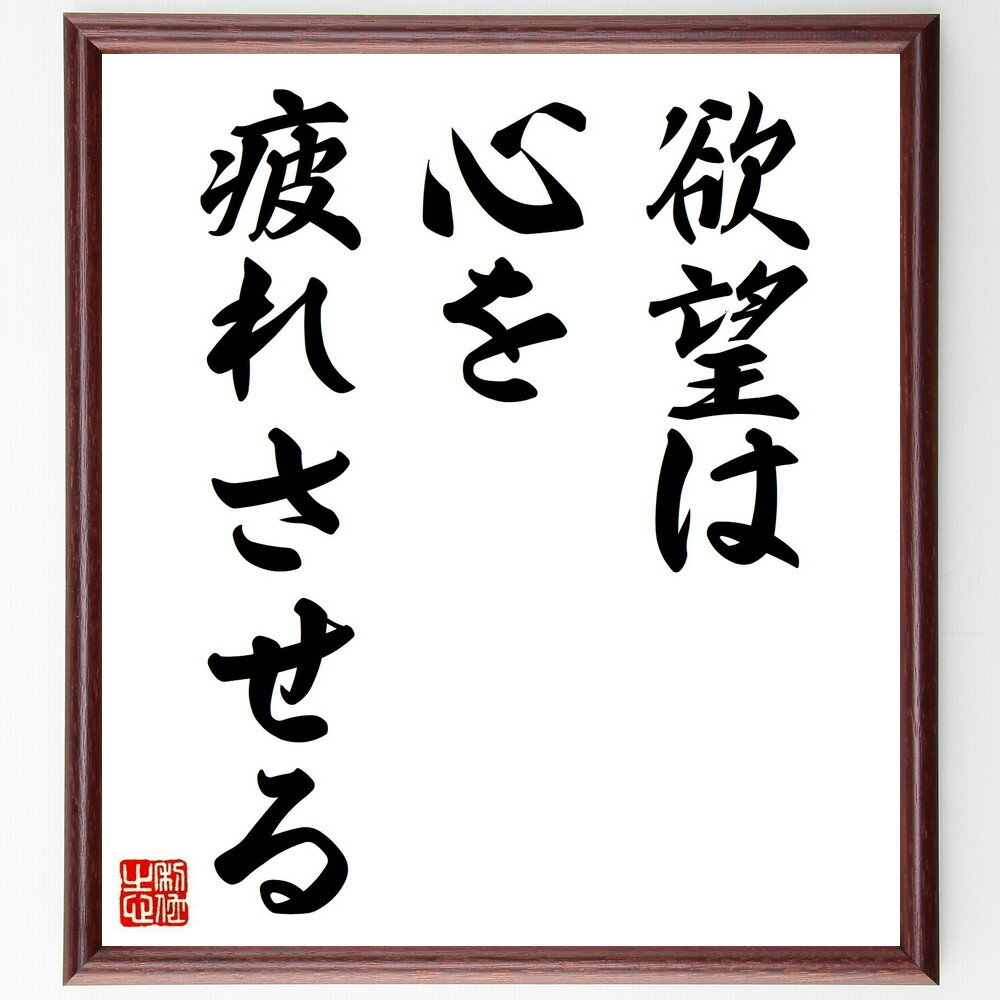 欲望は
心を
疲れさせる